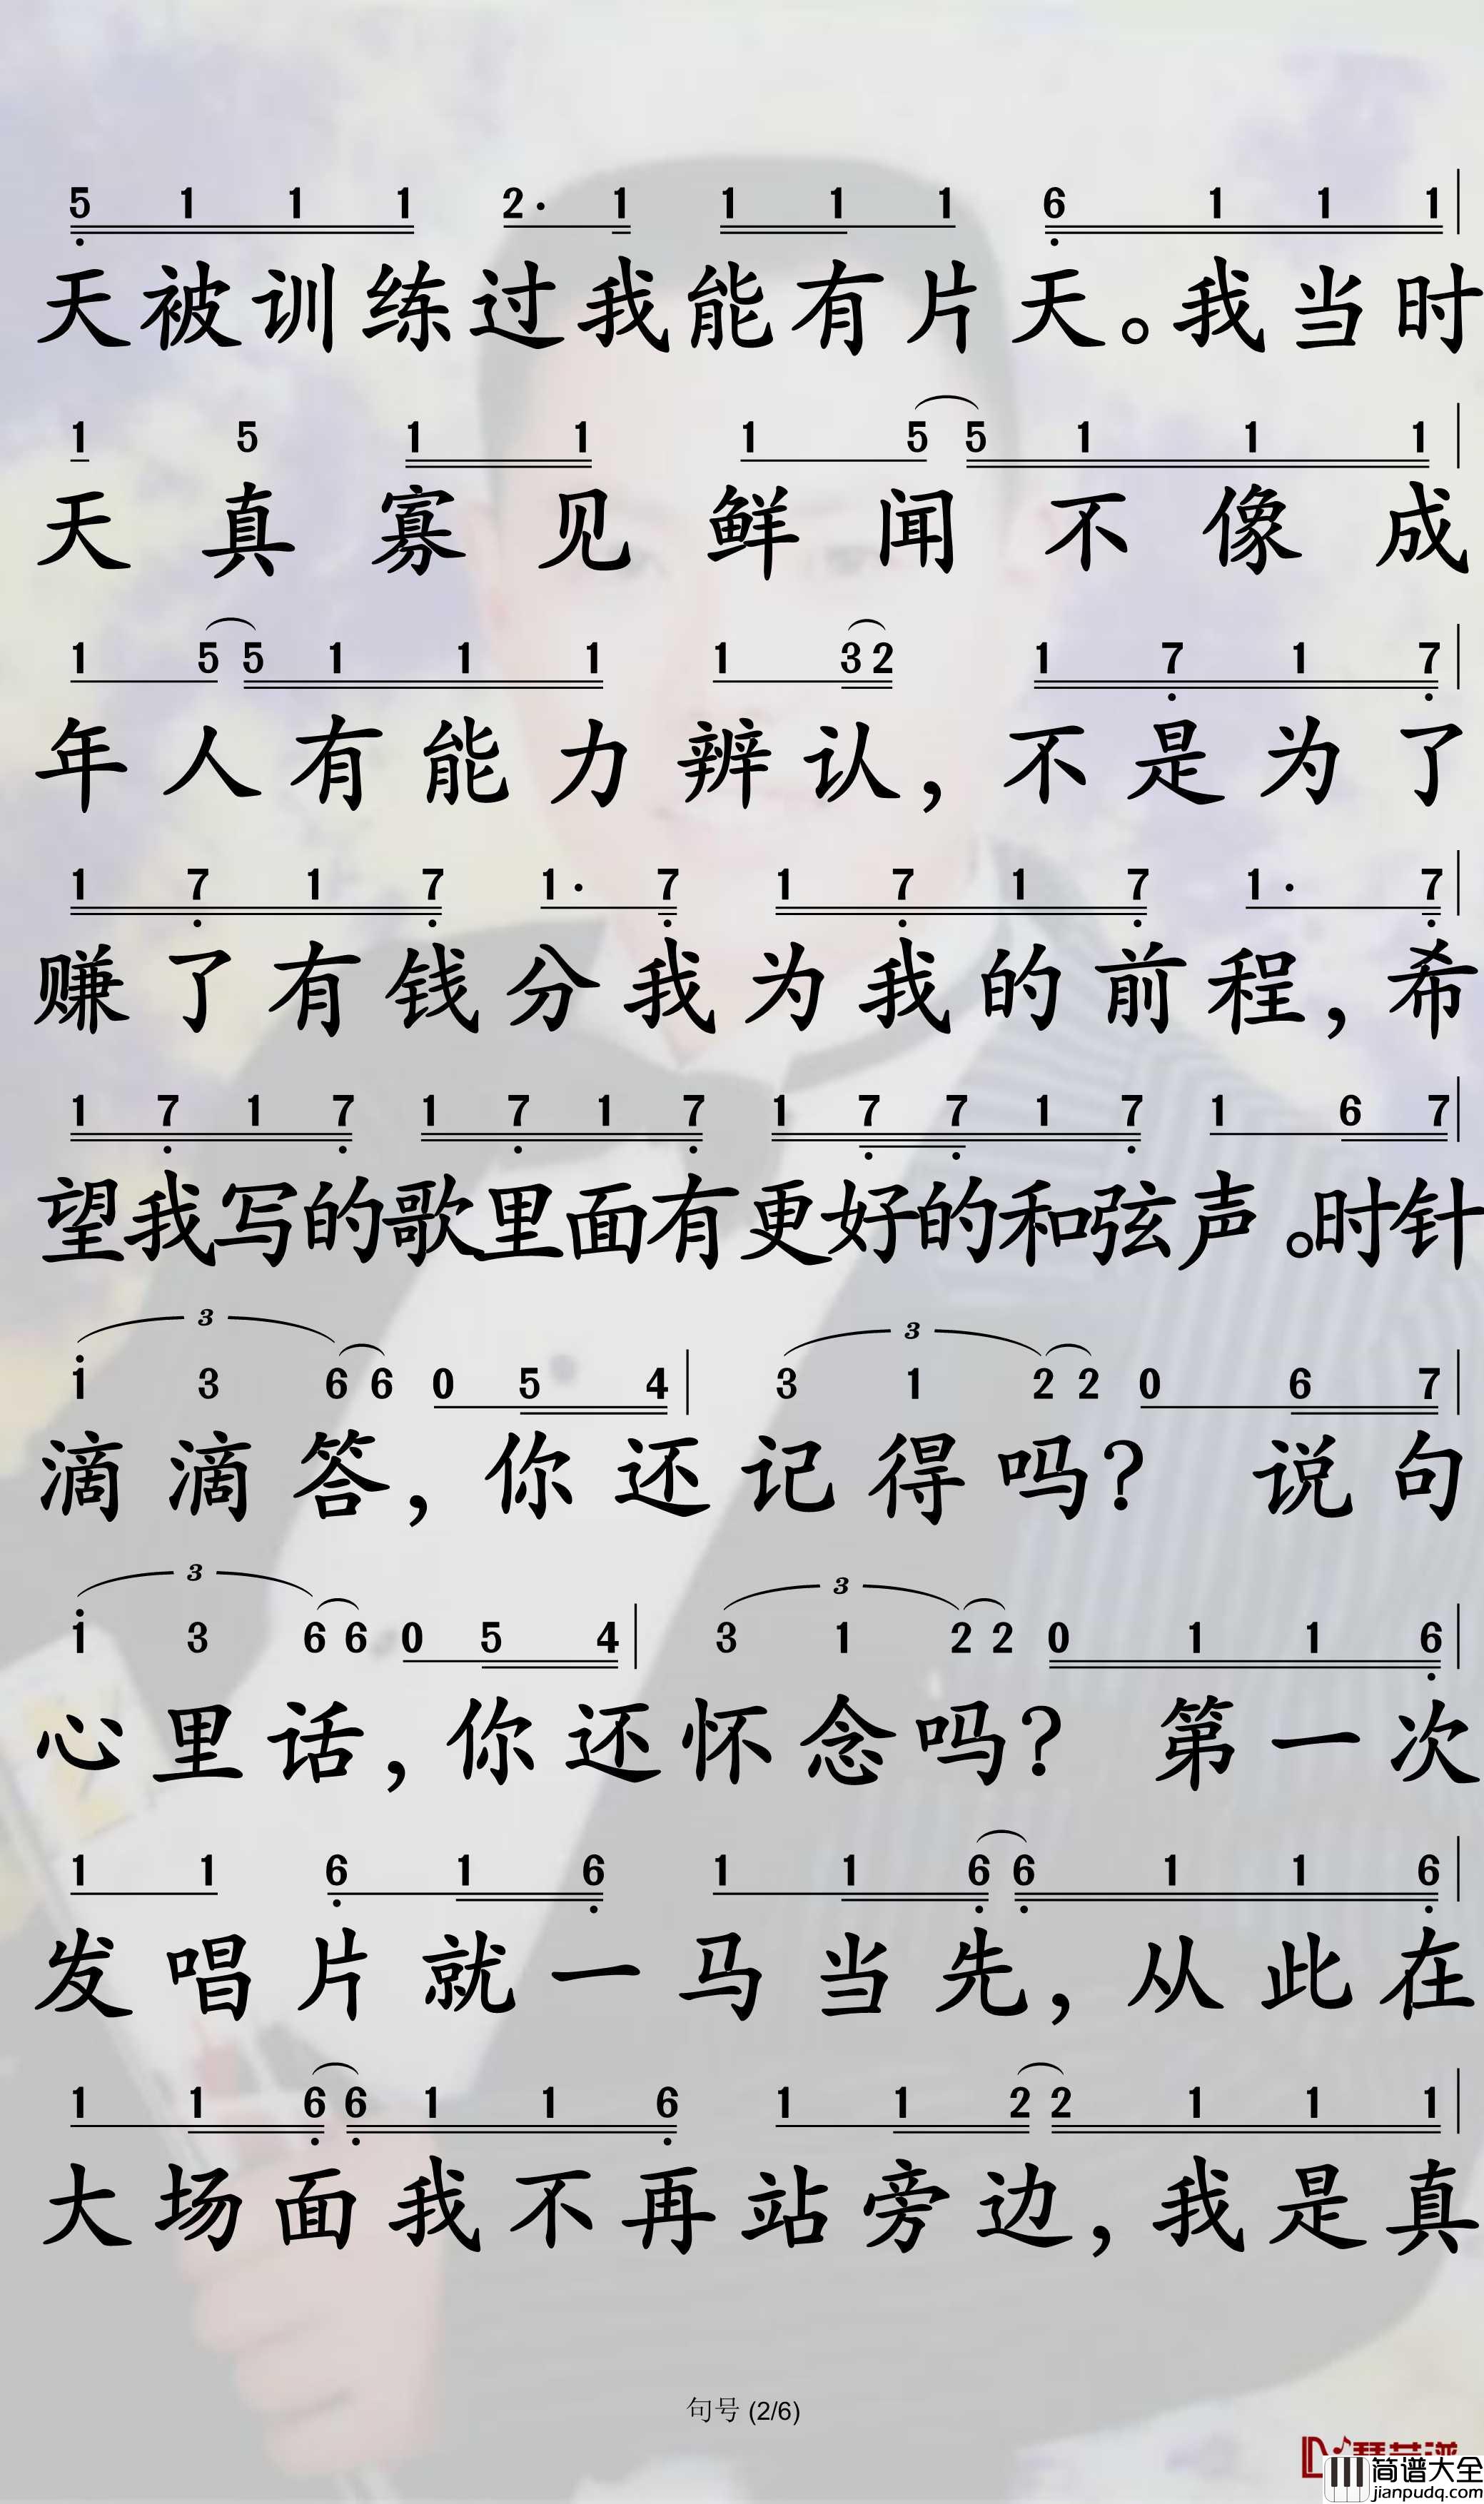 5 1 1 1 2· 1 1 1 1 6 1 1 1
天被训练过我能有片天。我当时
1 5 1 1 1 5 5 1 1 1
天真寡见鲜闻不像成
1 5 5 1 1 1 1 3 2 1 7 1 7
年人有能力辨认,不是为了
1 7 1 7 1· 7 1 7 1 7 1· 7
赚了有钱分我为我的前程,希
1 7 1 7 1 7 1 7 1 7 7 1 7 1 6 7
望我写的歌里面有更好的和弦声。时针
3 3
1 3 6 6 0 5 4 3 1 2 2 0 6 7
滴滴答,你还记得吗? 说句
3 3
1 3 6 6 0 5 4 3 1 2 2 0 1 1 6
心里话,你还怀念吗? 第一次
1 1 6 1 6 1 1 6 6 1 1 6
发唱片就一马当先,从此在
1 1 6 6 1 1 6 1 1 2 2 1 1 1
大场面我不再站旁边,我是真
句号 (2/6)
简谱大全
jianpudq.com